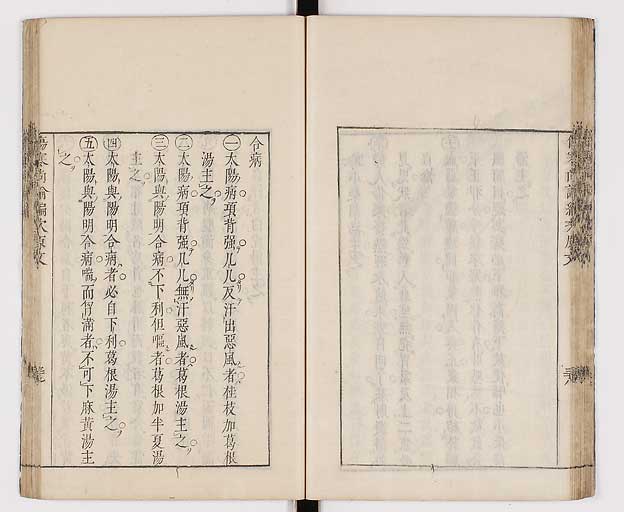 合病
㊀太陽病項背强几几反汗出惡風者桂枝加葛根
湯主之
㊁太陽病項背强几几無汗惡風者葛根湯主之
㊂太陽與陽明合病不下利但嘔者葛根加半夏湯
主之
㊃太陽與陽明合病者必自下利葛根湯主之
㊄太陽與陽明合病喘而胷滿者不可下麻黃湯主
之
傷寒尚論編次原文